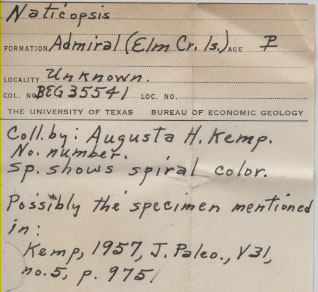 Naticopsis
FORMATION Admiral (Elm Cr. ls.) AGE P
LOCALITY Unknown.
COL. NO. BEG35541 LOC. NO.
THE UNIVERSITY OF TEXAS BUREAU OF ECONOMIC GEOLOGY
Coll. by: Augusta H. Kemp.
No. number.
Sp. shows spiral color.
Possibly the specimen mentioned
in:
Kemp, 1957, J. Paleo., V31,
no. 5, p. 975